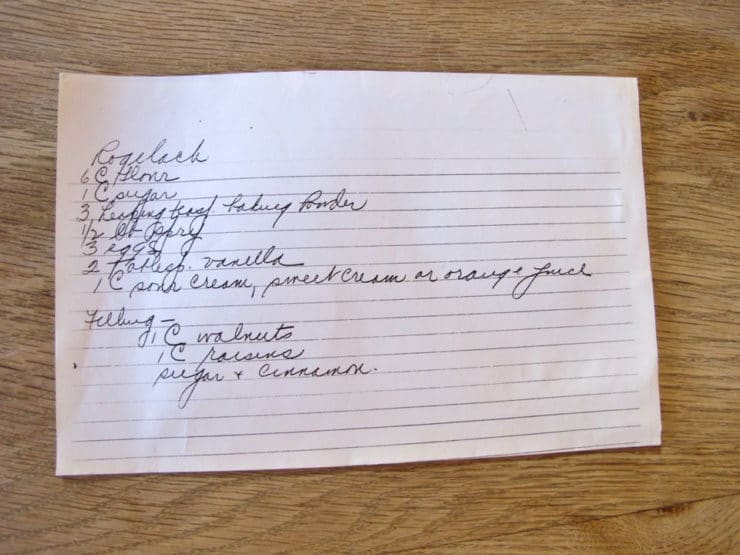 Rogelach
6 C Flour
1 C sugar
3 Heaping teasp. baking Powder
1/2 lb Spry
3 eggs
2 Tablesp. vanilla
1 C sour cream, sweet cream or orange juice
Filling -
1 C walnuts
1 C raisins
sugar + cinnamon.